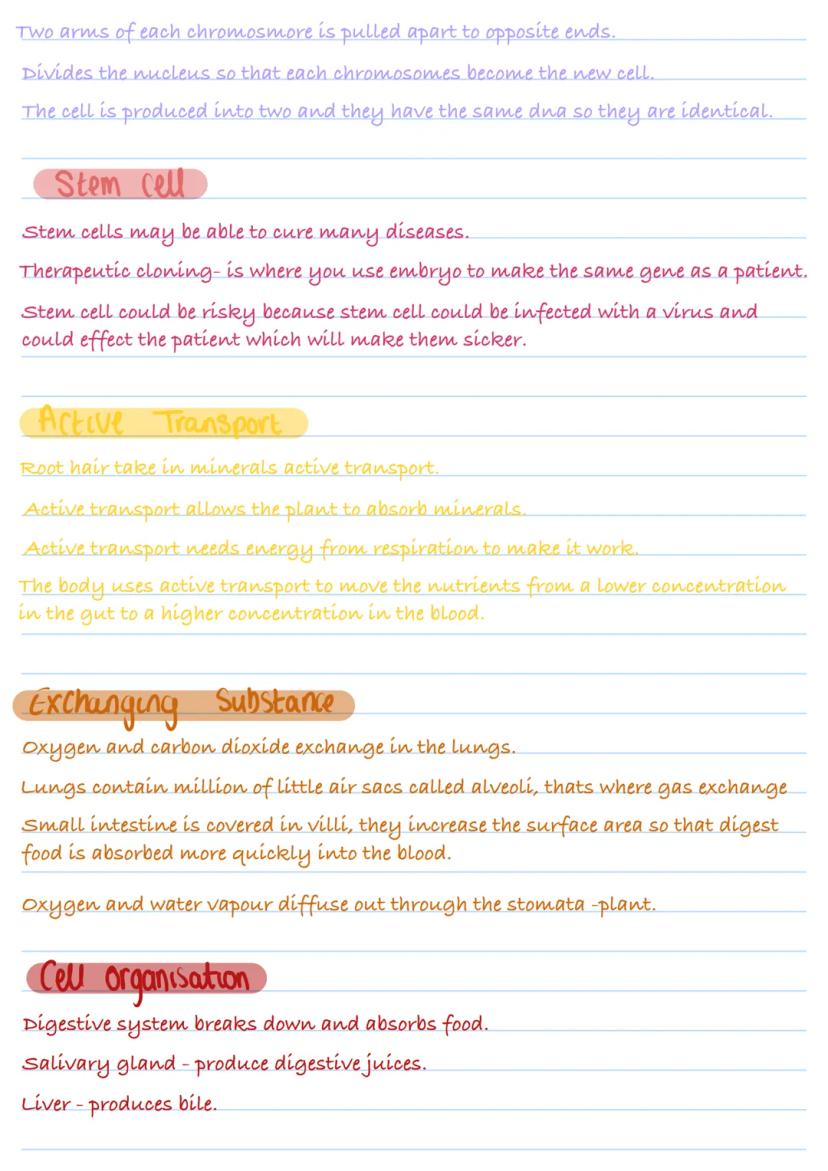 Two arms of each chromosmore is pulled apart to opposite ends.
Divides the nucleus so that each chromosomes become the new cell.
The cell is produced into two and they have the same dna so they are identical.
Stem cell
Stem cells may be able to cure many diseases.
Therapeutic cloning- is where you use embryo to make the same gene as a patient.
Stem cell could be risky because stem cell could be infected with a virus and
could effect the patient which will make them sicker.
Active Transport
Root hair take in minerals active transport.
Active transport allows the plant to absorb minerals.
Active transport needs energy from respiration to make it work.
The body uses active transport to move the nutrients from a lower concentration
in the gut to a higher concentration in the blood.
Exchanging Substance
Oxygen and carbon dioxide exchange in the lungs.
Lungs contain million of little air sacs called alveoli, thats where gas exchange
Small intestine is covered in villi, they increase the surface area so that digest
food is absorbed more quickly into the blood.
Oxygen and water vapour diffuse out through the stomata -plant.
Cell organisation
Digestive system breaks down and absorbs food.
Salivary gland - produce digestive juices.
Liver - produces bile.